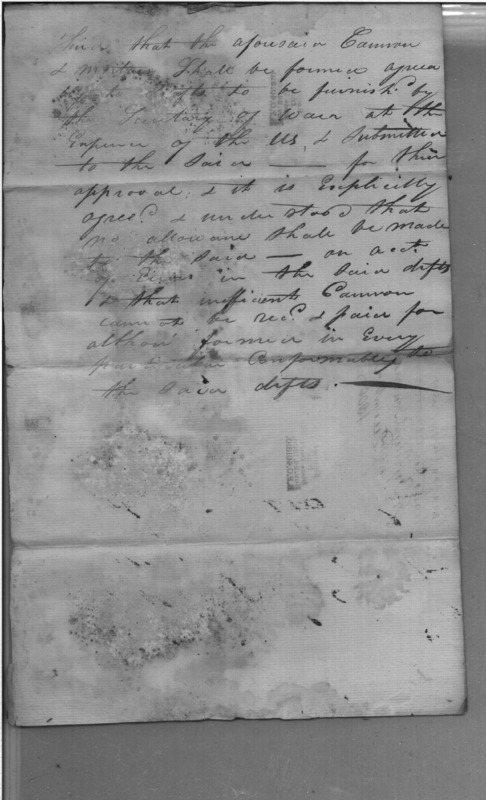 Third that the aforesaid Cannon
& mortars Shall be formed agreea
to be furnishd. by
the Secretary of War at the
Expence of the US, & Submitted
to the Said — for their
approval, & it is Explicitly
agreed. & understood that
no allowance shall be made
to the Said — on acct.
of in the Said dfts
& that inefficient Cannon
cannot be recd. & paid for
altho' formed in Every
particular Conformably to
the Said dfts. —